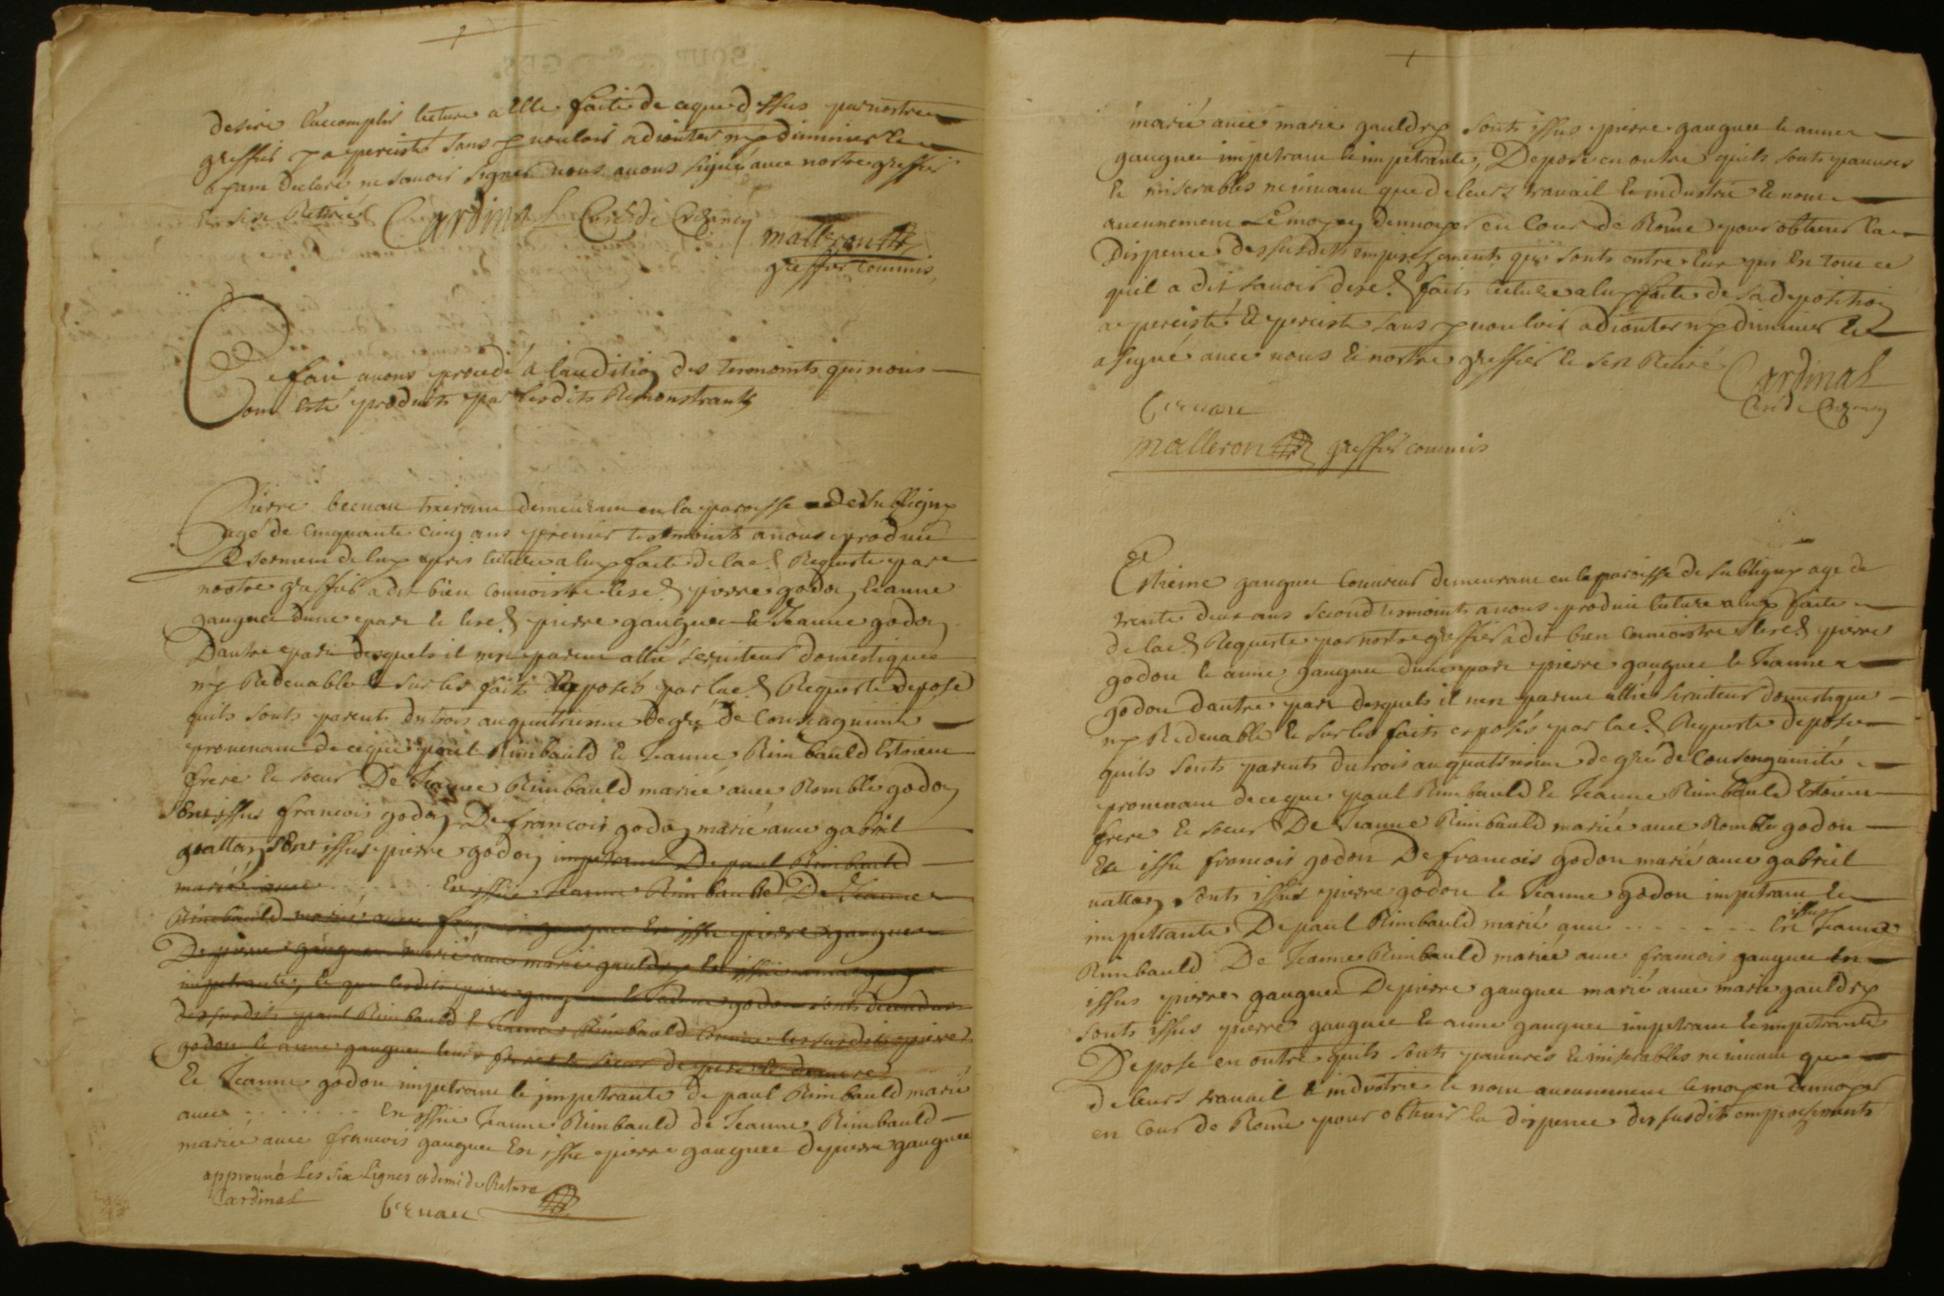 desire laccomplir lecture a Elle faite de ceque dessus par nostre
greffier y a persisté sans y vouloir adiouter ny diminuer et
a ... declaré ne savoir signer nous avons signé avec nostre greffier
Cardinal Curé de Crezancy
malleron
greffier commis
Ce fait avons procedé a laudition des tesmoints qui nous
ont esté produits par lesdits Remonstrants
Pierre becuau tixeran demeurant en la paroisse de Subligny
agé de cinquante cinq ans premier tesmoints a nous produit
Le serment de luy apres lecture a luy faite de lad. Requeste par
nostre greffier a dit bien connoistre lesd. pierre godon et anne
gauguee dune part et lesd. pierre gauguee et Jeanne godon
Dautre part desquels il nest parent allié seruiteur domestique
ny Redeuable et sur les faits exposés par lad. Requeste depose
quils sonts parents du trois au quatriesme degré de Consaguinité
prouenant de ceque paul Rimbauld et Jeanne Rimbauld Estoient
frere et soeur De Jeanne Rimbauld mariée avec Romble godon
sont issus francois godon De francois godon marié avec gabriel
nattan sont issus pierre godon impetrant De paul Rimbauld
marié avec . . . . . . . Est issue Jeanne Rimbauld De Jeanne
Rimbauld mariée avec francois gauguee Est issu pierre gauguee
De pierre gauguee marié avec marie gauldry Est issue anne gauguee
impetrante, et que lesdits pierre gauguee et Jeanne godon sonts descendus
des susdits paul Rimbauld et Jeanne Rimbauld comme les susdits pierre
godon et anne gauguee leurs freres et soeurs de pere et de mere
Et Jeanne godon impetrant et impetrante de paul Rimbauld marié
avec . . . . . . . Est issue Jeanne Rimbauld de Jeanne Rimbauld
mariée avec francois gauguee Est issu pierre gauguee de pierre gauguee
approuué Les six Lignes et demi de Rature
Cardinal
becuau
marié avec marie gauldry sonts issus pierre gauguee et anne
gauguee impetrant et impetrante, Depose en outre quils sonts pauures
et miserables ne viuant que de leurs trauail et industrie et nont
aucunement Le moyen denuoyer en Cour de Rome pour obtenir la
Dispence des susdits empeschements qui sonts entre Eux qui Est tout ce
quil a dit sauoir desd. faits lecture a luy faite de sa deposition
a persisté Et persiste sans y vouloir adiouter ny diminuer Et
a signé avec nous et nostre greffier le sera Retiré
Cardinal
Curé de Crezancy
becuau
malleron greffier commis
Estienne gauguee Couureur demeurant en la paroisse de Subligny agé de
trente deux ans second tesmoints a nous produit lecture a luy faite
de lad. Requeste par nostre greffier a dit bien connoistre lesd. pierre
godon et anne gauguee dune part pierre gauguee et Jeanne
godon dautre part desquels il nest parent allié seruiteur domestique
ny Redeuable et sur les faits exposés par lad. Requeste depose
quils sonts parents du trois au quatriesme degré de Consenguinité
prouenant de ceque paul Rimbauld et Jeanne Rimbauld Estoient
frere et soeur De Jeanne Rimbauld mariée avec Romble godon
Est issu francois godon De francois godon marié avec gabriel
nattan, sonts issus pierre godon et Jeanne godon impetrant et
impetrante De paul Rimbauld marié avec . . . . . . . Est issue Jeanne
Rimbauld De Jeanne Rimbauld mariée avec francois gauguee Est
issus pierre gauguee De pierre gauguee marié avec marie gauldry
sonts issus pierre gauguee et anne gauguee impetrant et impetrante
Depose en outre quils sonts pauures et miserables ne viuant que
de leurs trauail et industrie et nont aucunement le moyen denuoyer
en Cour de Rome pour obtenir la dispence des susdits empeschements